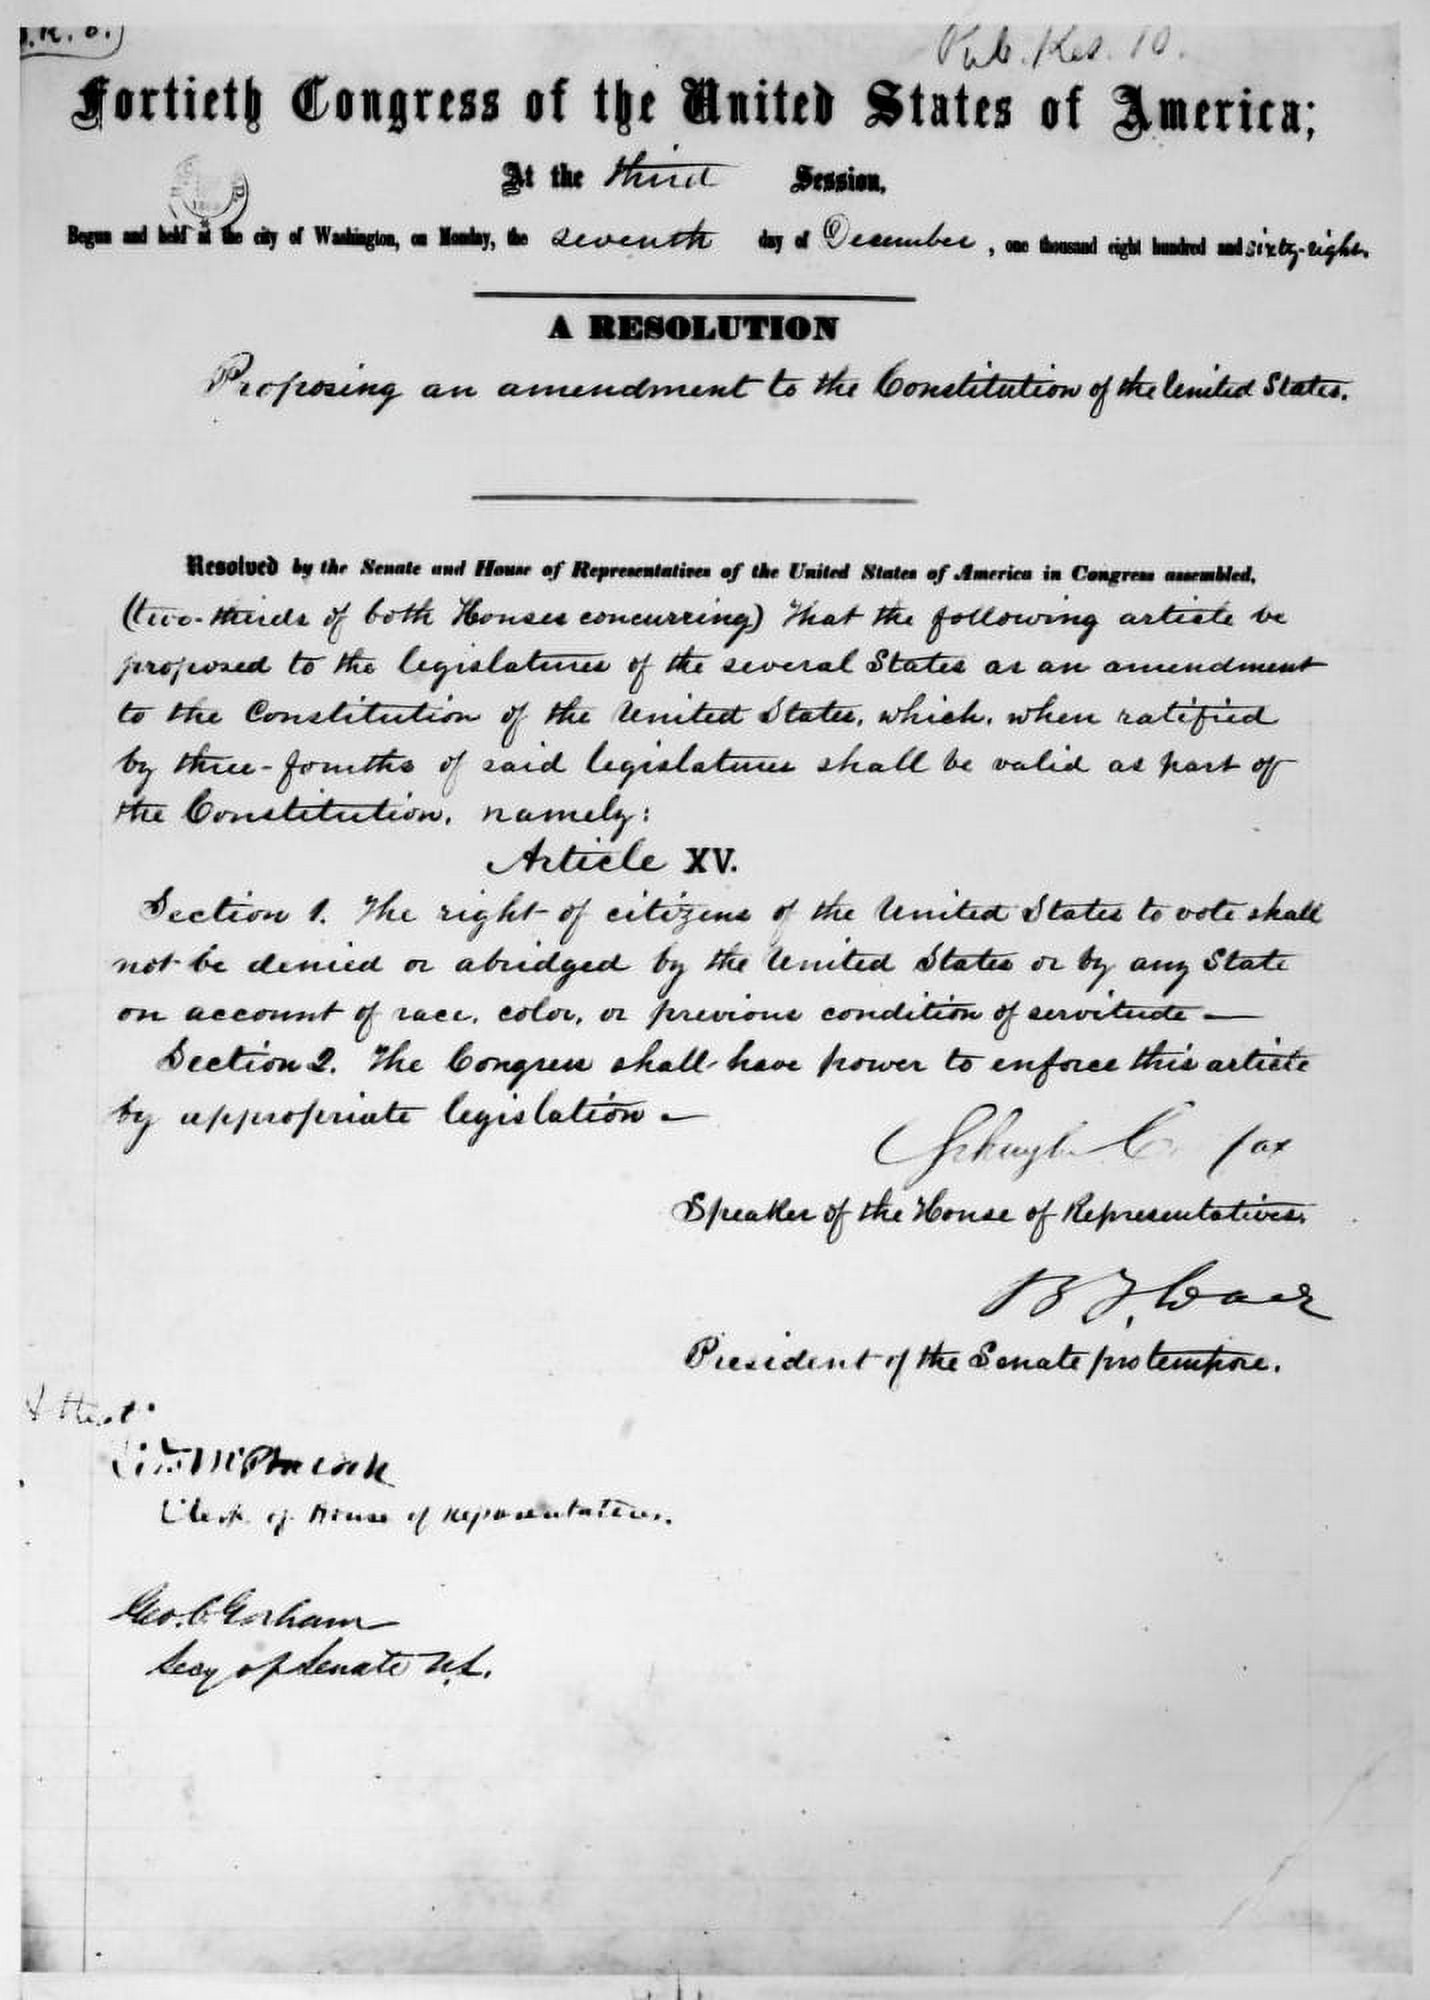 Pub. Res. 10.
Fortieth Congress of the United States of America;
At the third Session,
Begun and held at the city of Washington, on Monday, the seventh day of December, one thousand eight hundred and sixty-eight.
A RESOLUTION
Proposing an amendment to the Constitution of the United States.
Resolved by the Senate and House of Representatives of the United States of America in Congress assembled,
(two-thirds of both Houses concurring) That the following article be
proposed to the legislatures of the several States as an amendment
to the Constitution of the United States, which, when ratified
by three-fourths of said legislatures shall be valid as part of
the Constitution, namely:
Article XV.
Section 1. The right of citizens of the United States to vote shall
not be denied or abridged by the United States or by any State
on account of race, color, or previous condition of servitude —
Section 2. The Congress shall have power to enforce this article
by appropriate legislation —
Schuyler Colfax
Speaker of the House of Representatives.
B F Wade
President of the Senate pro tempore.
Attest:
McPherson
Clerk of House of Representatives.
Geo. C. Gorham
Secy of Senate U.S.